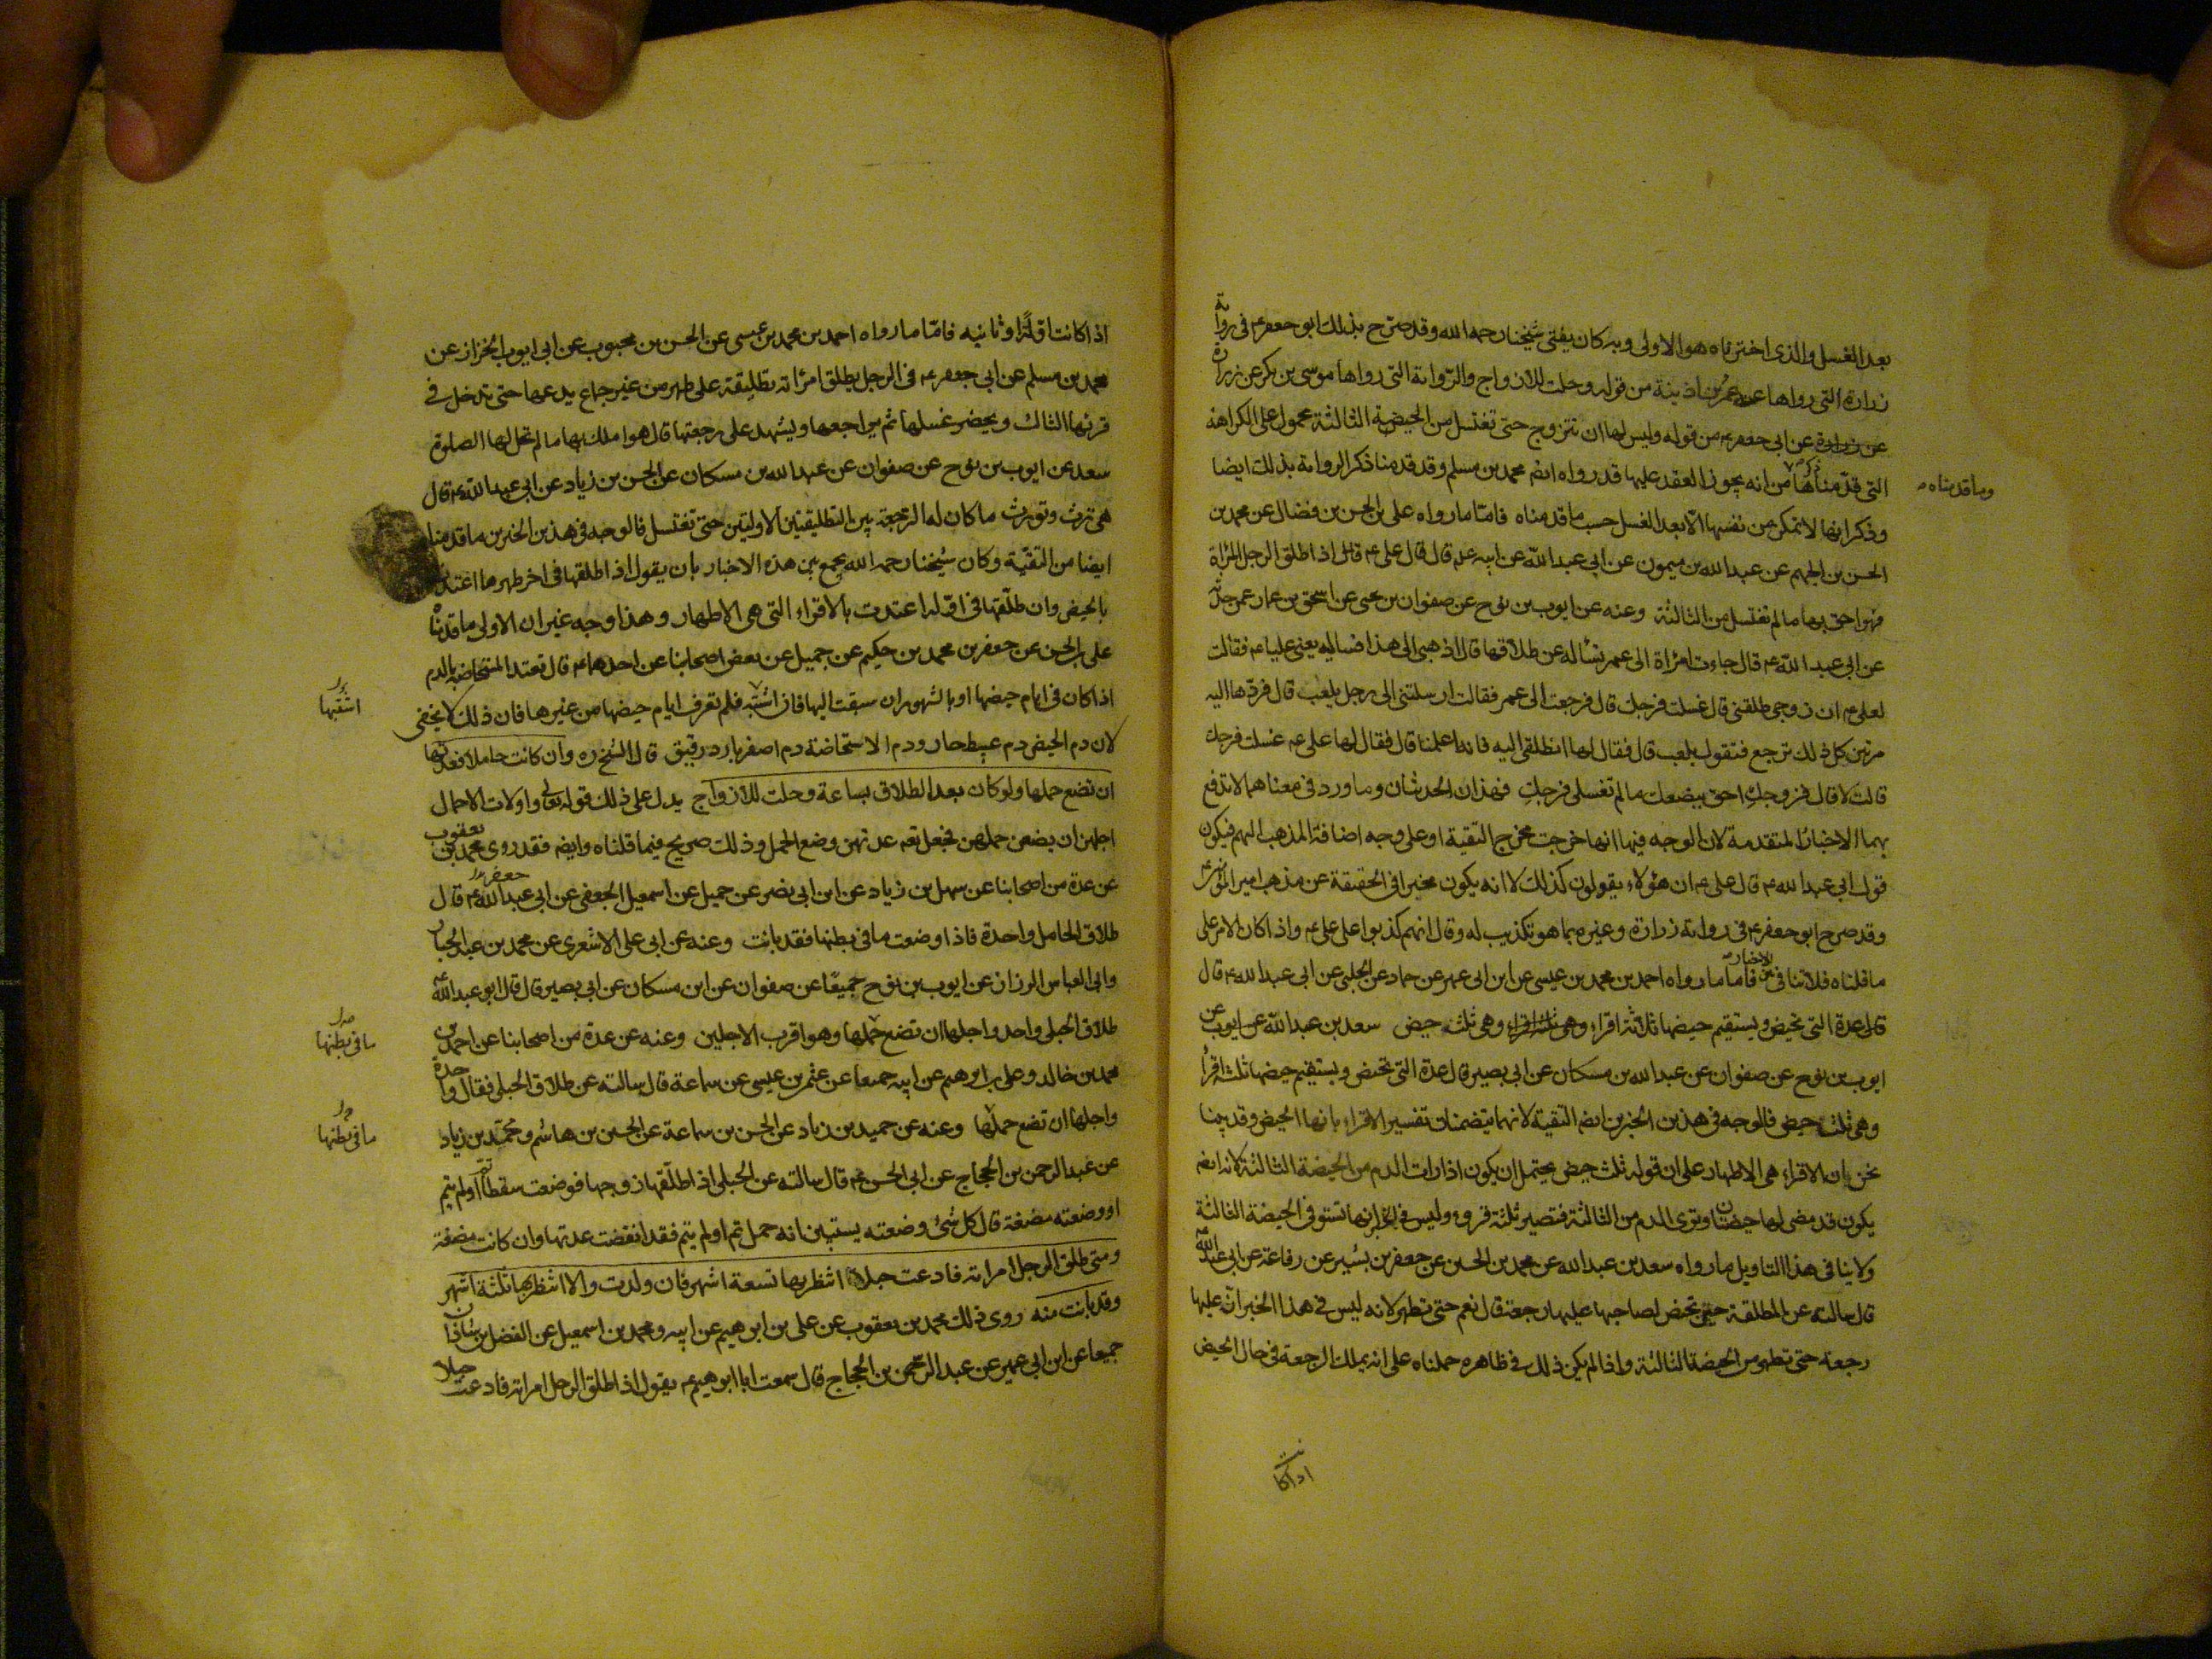 بعد الغسل والذى اخترناه هو الاولى وبه كان يفتى شيخنا رحمه الله وقد صرّح بذلك ابو جعفر ع فى رواية
زرارة التى رواها عمر بن اذينة من قوله وحلت للازواج والرّواية التى رواها موسى بن بكر عن زرارة
عن زرارة عن ابى جعفر ع من قوله وليس لها ان تتزوج حتى تغتسل من الحيضة الثالثة محمول على الكراهة
التى قدّمناها من انه يجوز العقد عليها قد رواه ايضا محمد بن مسلم وقد قدمنا ذكر الرواية بذلك ايضا
وما قدمناه
وذكر انها لا تمكن من نفسها الّا بعد الغسل حسب ما قدمناه فامّا ما رواه على بن الحسن بن فضال عن محمد بن
الحسن بن الجهم عن عبد الله بن ميمون عن ابى عبد الله عن ابيه ع قال قال على ع قال اذا طلق الرجل المرأة
فهو احق بها ما لم تغتسل من الثالثة وعنه عن ايوب بن نوح عن صفوان بن يحيى عن اسحق بن عمار عمن حدثه
عن ابى عبد الله ع قال جاءت امرأة الى عمر تسأله عن طلاقها قال اذهبى الى هذا فساليه يعنى عليا ع فقالت
لعلى ع ان زوجى طلقنى قال غسلت فرجك قال فرجعت الى عمر فقالت ارسلتنى الى رجل يلعب قال فردها اليه
مرتين كل ذلك ترجع فتقول يلعب قال فقال لها انطلقى اليه فانه اعلمنا قال فقال لها على ع غسلت فرجك
قالت لا قال فزوجك احق ببضعك ما لم تغسلى فرجك فهذان الحديثان وما ورد فى معناهما لا تدفع
بهما الاخبار المتقدمة لان الوجه فيها انها خرجت مخرج التقية او على وجه اضافة المذهب اليهم فيكون
قول ابى عبد الله ع قال على ع ان هؤلاء يقولون كذلك لا انه يكون مخبرا فى الحقيقة عن مذهب امير المؤمنين
وقد صرح ابو جعفر ع فى رواية زرارة وغيره بما هو تكذيب له وقال انهم كذبوا على على ع واذا كان الامر على
ما قلناه فلا تنافى بين الاخبار فاما ما رواه احمد بن محمد بن عيسى عن ابن ابى عمير عن حماد عن الحلبى عن ابى عبد الله ع قال
قال عدة التى تحيض ويستقيم حيضها ثلاثة اقراء وهى ثلث حيض سعد بن عبد الله عن ايوب عن
ايوب بن نوح عن صفوان عن عبد الله بن مسكان عن ابى بصير قال عدة التى تحيض ويستقيم حيضها ثلثة اقراء
وهى ثلث حيض فالوجه فى هذين الخبرين ايضا التقية لانهما يتضمنان تفسير الاقراء بانها الحيض وقد بينا
نحن ان الاقراء هى الاطهار على ان قوله ثلث حيض يحتمل ان يكون اذا رات الدم من الحيضة الثالثة لانه ايضا
يكون قد مضى لها حيضتان وترى الدم من الثالثة فتصير ثلثة قروء وليس فى الخبر انها تستوفى الحيضة الثالثة
ولا ينافى هذا التاويل ما رواه سعد بن عبد الله عن محمد بن الحسين عن جعفر بن بشير عن رفاعة عن ابى عبد الله
قال سالته عن المطلقة حين تحيض لصاحبها عليها رجعة قال نعم حتى تطهر لانه ليس فى هذا الخبر انّ عليها
رجعة حتى تطهر من الحيضة الثالثة واذا لم يكن ذلك فى ظاهره حملناه على انه يملك الرجعة فى حال الحيض
اذا كانت
اذا كانت اوّلة او ثانيه فامّا ما رواه احمد بن محمد بن عيسى عن الحسن بن محبوب عن ابى ايوب الخزاز عن
محمد بن مسلم عن ابى جعفر ع فى الرجل يطلق امرأته تطليقة على طهر من غير جماع يدعها حتى تدخل فى
قرئها الثالث ويحضر غسلها ثم يراجعها ويشهد على رجعتها قال هو املك بها ما لم تحل لها الصلوة
سعد عن ايوب بن نوح عن صفوان عن عبد الله بن مسكان عن الحسن بن زياد عن ابى عبد الله ع قال
هى ترث وتورث ما كان له الرجعة بين التطليقتين الاولتين حتى تغتسل فالوجه فى هذين الخبرين ما قدمناه
ايضا من التقيّة وكان شيخنا رحمه الله يجمع بين هذه الاخبار بان يقول اذا طلقها فى اخر طهرها اعتدت
بالحيض وان طلّقها فى اوّله اعتدت بالاقراء التى هى الاطهار وهذا وجه غير ان الاولى ما قدمناه
على بن الحسن عن جعفر بن محمد بن حكيم عن جميل عن بعض اصحابنا عن احدهما ع قال تعتد المستحاضة بالدم
اذا كان فى ايام حيضها او بالشهور ان سبقت اليها فان اشتبه فلم تعرف ايام حيضها من غيرها فان ذلك لا يخفى
اشتبها
لان دم الحيض دم عبيط حار ودم الاستحاضة دم اصفر بارد رقيق قال الشيخ ره وان كانت حاملا فعدتها
ان تضع حملها ولو كان بعد الطلاق بساعة وحلت للازواج يدل على ذلك قوله تعالى واولات الاحمال
اجلهن ان يضعن حملهن فجعل تعم عدتهن وضع الحمل وذلك صريح فيما قلناه وايضا فقد روى محمد بن يعقوب
عن عدة من اصحابنا عن سهل بن زياد عن ابن ابى نصر عن جميل عن اسمعيل الجعفى عن ابى عبد الله ع قال
جعفر
طلاق الحامل واحدة فاذا وضعت ما فى بطنها فقد بانت وعنه عن ابى على الاشعرى عن محمد بن عبد الجبار
وابى العباس الرزاز عن ايوب بن نوح جميعًا عن صفوان عن ابن مسكان عن ابى بصير قال قال ابو عبد الله ع
طلاق الحبلى واحد واجلها ان تضع حملها وهو اقرب الاجلين وعنه عن عدة من اصحابنا عن احمد بن
ما فى بطنها
محمد بن خالد وعلى بن ابرهيم عن ابيه جميعا عن عثمن بن عيسى عن سماعة قال سالته عن طلاق الحبلى فقال واحدة
واجلها ان تضع حملها وعنه عن حميد بن زياد عن الحسن بن سماعة عن الحسين بن هاشم و محمّد بن زياد
ما فى بطنها
عن عبد الرحمن بن الحجاج عن ابى الحسن ع قال سالته عن الحبلى اذا طلّقها زوجها فوضعت سقطا تم او لم يتم
او وضعته مضغة قال كل شئ وضعته يستبين انه حمل تم او لم يتم فقد انقضت عدتها وان كانت مضغة
ومتى طلق الرجل امراته فادعت حبلا انتظر بها تسعة اشهر فان ولدت والا انتظر بها ثلثة اشهر
وقد بانت منه روى ذلك محمد بن يعقوب عن على بن ابرهيم عن ابيه ومحمد بن اسمعيل عن الفضل بن شاذان
جميعا عن ابن ابى عمير عن عبد الرّحمن بن الحجاج قال سمعت ابا ابرهيم ع يقول اذا طلق الرجل امراته فادعت حبلا